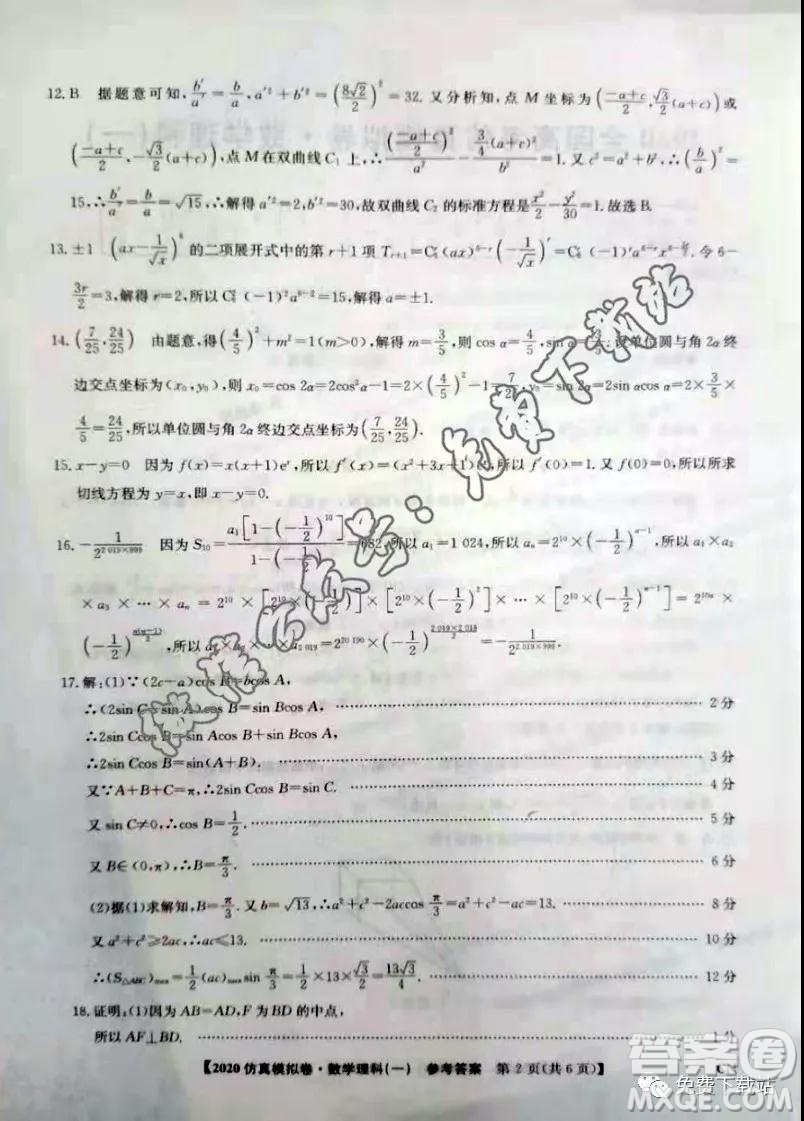 12. B 据题意可知, b′/a′ = b/a, a′² + b′² = (8√2/2)² = 32. 又分析知, 点 M 坐标为 ((-a+c)/2, √3/2(a+c)) 或
((-a+c)/2, -√3/2(a+c)), 点 M 在双曲线 C₁ 上, ∴ ((-a+c)/2)²/a² - 3/4(a+c)²/b² = 1. 又 c² = a² + b², ∴ (b/a)² =
15, ∴ b′/a′ = b/a = √15, ∴ 解得 a′² = 2, b′² = 30, 故双曲线 C₂ 的标准方程是 x²/2 - y²/30 = 1. 故选 B.
13. ±1 (ax - 1/√x)⁶ 的二项展开式中的第 r+1 项 T_{r+1} = C₆ʳ (ax)^{6-r} (-1/√x)ʳ = C₆ʳ (-1)ʳ a^{6-r} x^{6-3r/2}. 令 6-
3r/2 = 3, 解得 r = 2, 所以 C₆² (-1)² a^{6-2} = 15, 解得 a = ±1.
14. (7/25, 24/25) 由题意, 得 (4/5)² + m² = 1 (m>0), 解得 m = 3/5, 则 cos α = 4/5, sin α = 设单位圆与角 2α 终
边交点坐标为 (x₀, y₀), 则 x₀ = cos 2α = 2cos²α - 1 = 2×(4/5)² - 1 = 7/25, y₀ = sin 2α = 2sin αcos α = 2×3/5×
4/5 = 24/25, 所以单位圆与角 2α 终边交点坐标为 (7/25, 24/25).
15. x-y=0 因为 f(x) = x(x+1)eˣ, 所以 f′(x) = (x²+3x+1)eˣ, 所以 f′(0) = 1. 又 f(0) = 0, 所以所求
切线方程为 y=x, 即 x-y=0.
16. -1/2^{2 019×999} 因为 S₁₀ = a₁[1-(-1/2)¹⁰]/(1-(-1/2)) = 682, 所以 a₁ = 1 024, 所以 aₙ = 2¹⁰×(-1/2)^{n-1}, 所以 a₁×a₂
×a₃×…×aₙ = 2¹⁰×[2¹⁰×(-1/2)]×[2¹⁰×(-1/2)²]×…×[2¹⁰×(-1/2)^{n-1}] = 2^{10n}×
(-1/2)^{n(n-1)/2}, 所以 a₁×a₂×…×a_{2 019} = 2^{20 190}×(-1/2)^{2 019×2 018/2} = -1/2^{2 019×999}.
17. 解: (1) ∵ (2c-a)cos B = bcos A,
∴ (2sin C-sin A)cos B = sin Bcos A, 2 分
∴ 2sin Ccos B = sin Acos B + sin Bcos A,
∴ 2sin Ccos B = sin(A+B). 3 分
又 ∵ A+B+C=π, ∴ 2sin Ccos B = sin C. 4 分
又 sin C≠0, ∴ cos B = 1/2. 5 分
又 B∈(0,π), ∴ B = π/3. 6 分
(2) 据(1)求解知, B = π/3. 又 b = √13, ∴ a²+c²-2accos π/3 = a²+c²-ac = 13. 8 分
又 a²+c²≥2ac, ∴ ac≤13. 10 分
∴ (S△ABC)max = 1/2 (ac)max sin π/3 = 1/2×13×√3/2 = 13√3/4. 12 分
18. 证明: (1) 因为 AB=AD, F 为 BD 的中点,
所以 AF⊥BD. 1 分
【2020 仿真模拟卷·数学理科(一) 参考答案 第 2 页(共 6 页)】
免费下载站
答案圈
MXQE.COM